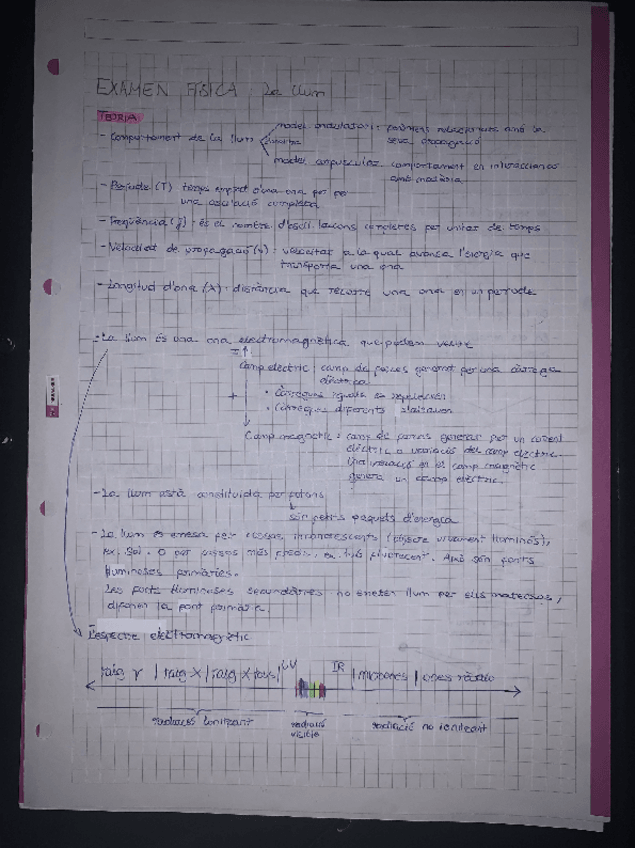 EXAMEN FÍSICA La llum
TEORIA
- Comportament de la llum
model ondulatori: fenòmens relacionats amb la
seva propagació
model corpuscular: comportament en interaccionar
amb matèria
- Període (T) temps emprat d'una ona per fer
una oscil·lació completa
- Freqüència (f): és el nombre d'oscil·lacions completes per unitat de temps
- Velocitat de propagació (v): velocitat a la qual avança l'energia que
transporta una ona
- Longitud d'ona (λ): distància que recorre una ona en un període
- La llum és una ona electromagnètica que podem veure
Camp elèctric: camp de forces generat per una càrrega
elèctrica
• Càrregues iguals es repel·leixen
• Càrregues diferents s'atrauen
+
Camp magnètic: camp de forces generat per un corrent
elèctric o variació del camp elèctric.
Una variació en el camp magnètic
genera un camp elèctric.
- La llum està constituïda per fotons
són petits paquets d'energia
- La llum és emesa per cossos incandescents (objecte vivament lluminós),
ex. Sol. O per gasos més freds, ex. tub fluorescent. Això són fonts
lluminoses primàries.
Les fonts lluminoses secundàries no emeten llum per sus mateixos,
difonen la font primària.
L'espectre electromagnètic
raig γ | raig X | raig X tous | UV IR | microones | ones ràdio
radiació ionitzant radiació visible radiació no ionitzant